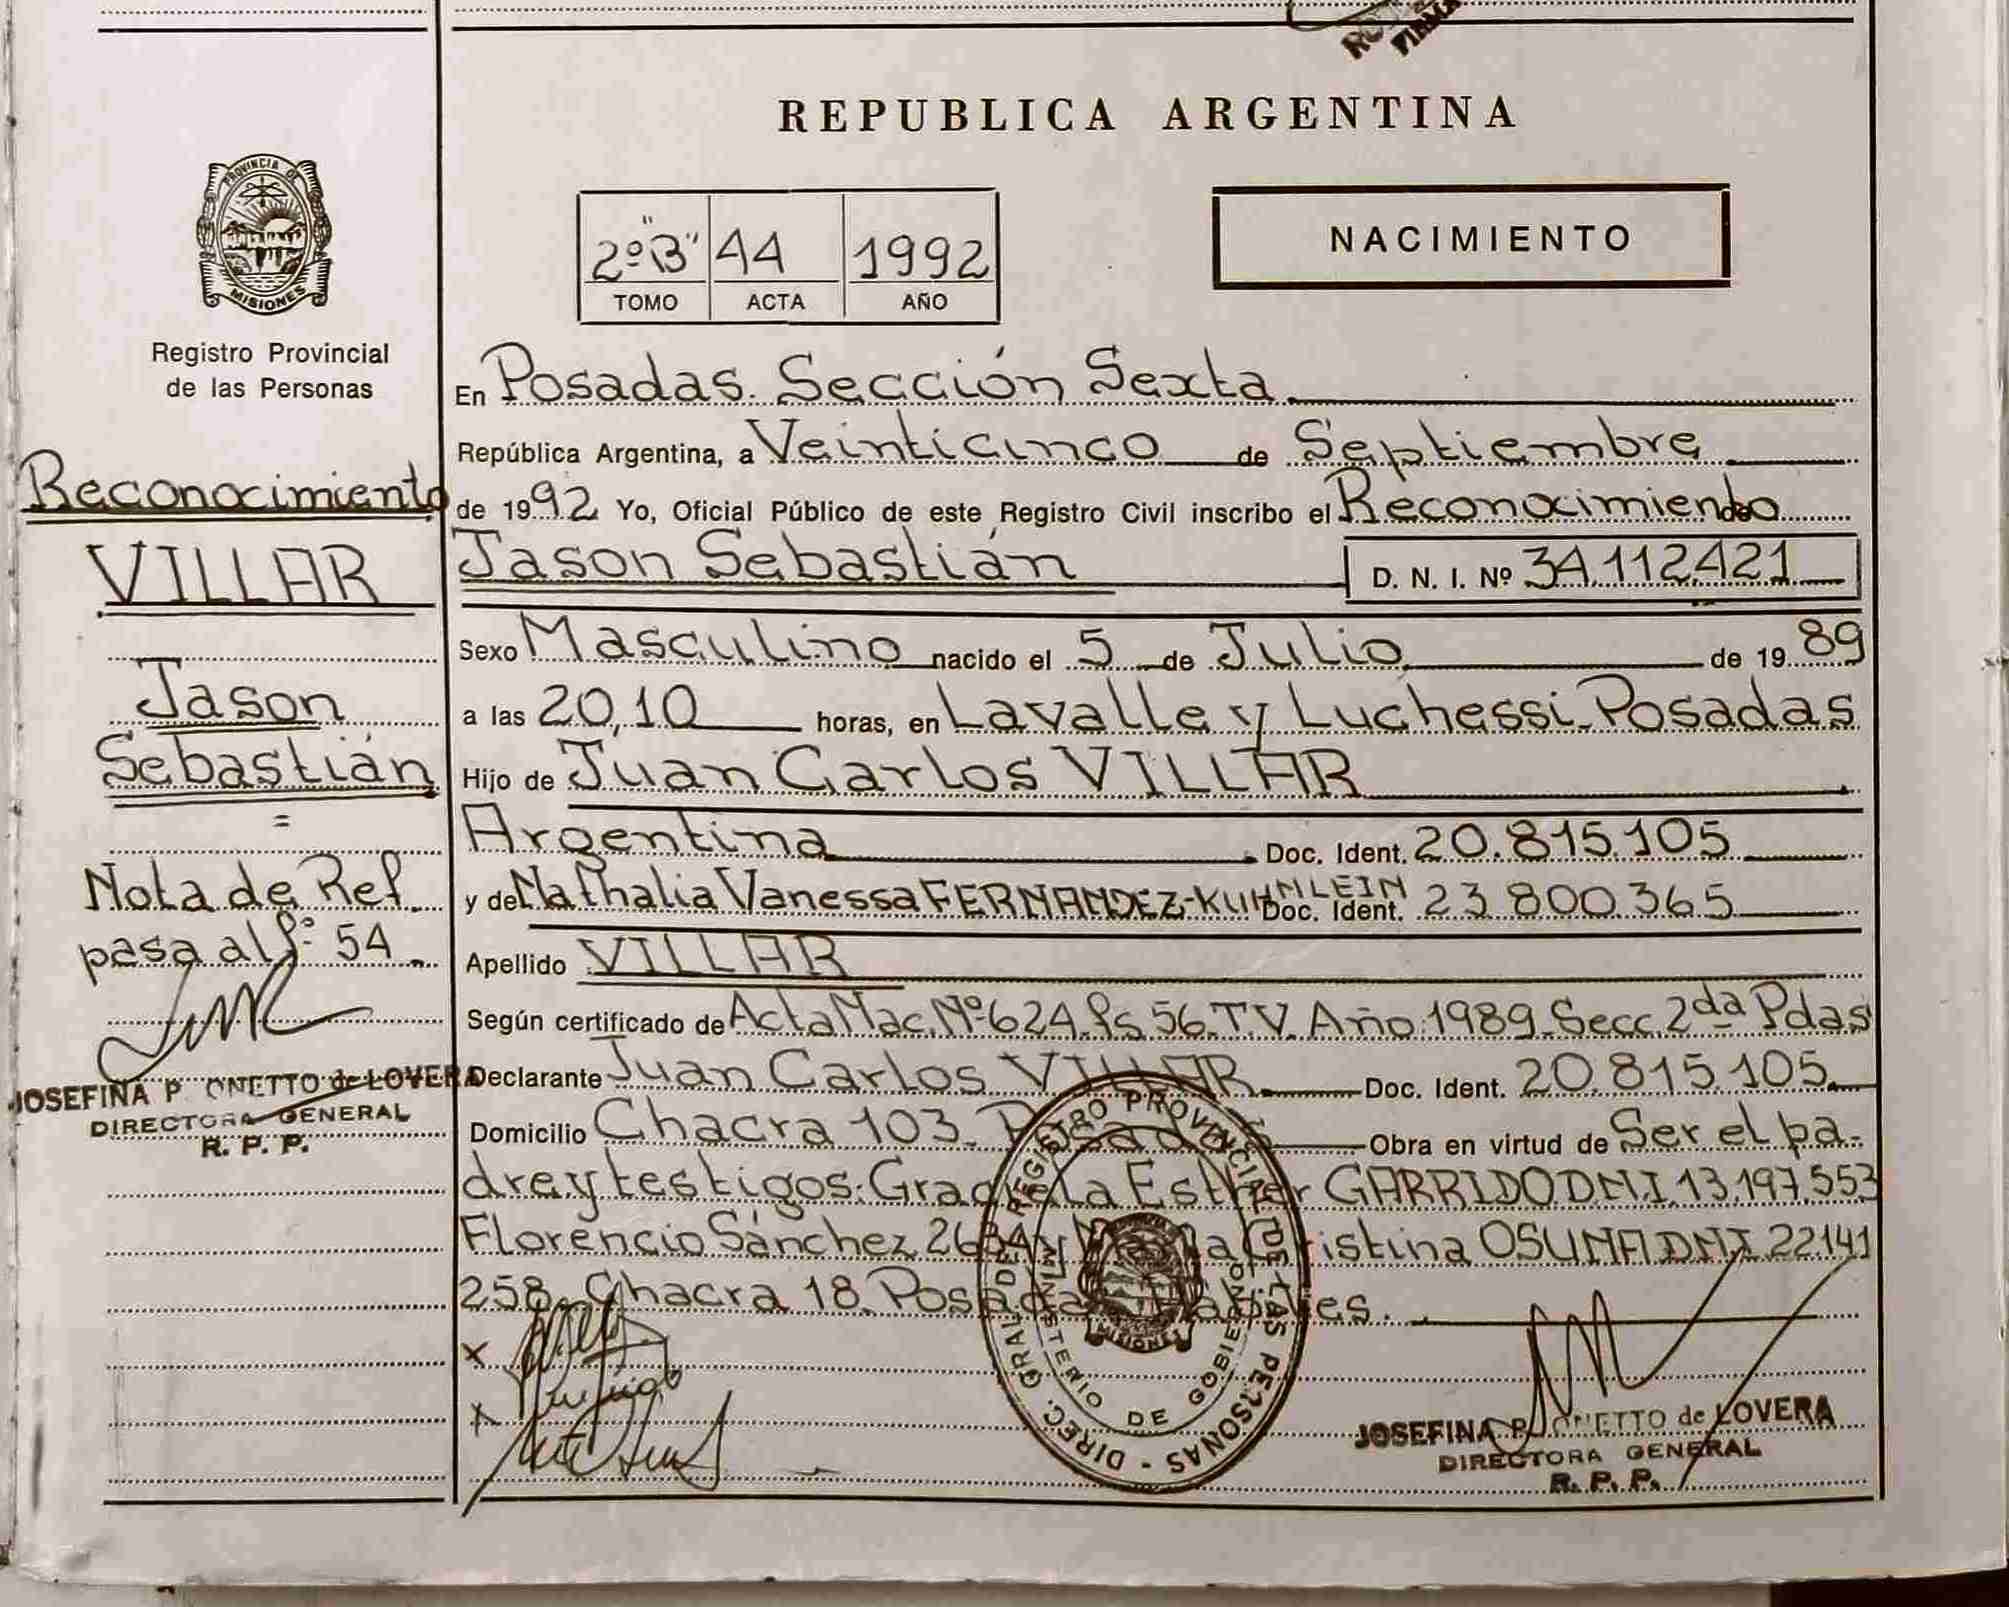 REPUBLICA ARGENTINA
PROVINCIA DE
MISIONES
Registro Provincial
de las Personas
2º "B" 44 1992
TOMO ACTA AÑO
NACIMIENTO
En Posadas. Sección Sexta
República Argentina, a Veinticinco de Septiembre
de 1992 Yo, Oficial Público de este Registro Civil inscribo el Reconocimiento
Jason Sebastián D. N. I. Nº 34.112.421
Sexo Masculino nacido el 5 de Julio de 1989
a las 20,10 horas, en Lavalle y Luchessi-Posadas
Hijo de Juan Carlos VILLAR
Argentina Doc. Ident. 20.815.105
y de Nathalia Vanessa FERNANDEZ-KUHNLEIN Doc. Ident. 23.800.365
Apellido VILLAR
Según certificado de Acta Nac. Nº 624. Fs 56. T.V. Año 1989. Secc. 2da Pdas
Declarante Juan Carlos VILLAR Doc. Ident. 20.815.105
Domicilio Chacra 103. Posadas Obra en virtud de Ser el pa-
dre y testigos: Graciela Esther GARRIDO DNI. 13.197.553
Florencio Sánchez 2684 y María Cristina OSUNA DNI 22.141
258. Chacra 18. Posadas. Hábiles.
x
x
REGISTRO PROVINCIAL DE LAS PERSONAS - DIREC. GRAL DE
MINISTERIO DE GOBIERNO
MISIONES
JOSEFINA P. ONETTO de LOVERA
DIRECTORA GENERAL
R. P. P.
Reconocimiento
VILLAR
Jason
Sebastián
=
Nota de Ref.
pasa al fº 54.
JOSEFINA P. ONETTO de LOVERA
DIRECTORA GENERAL
R. P. P.